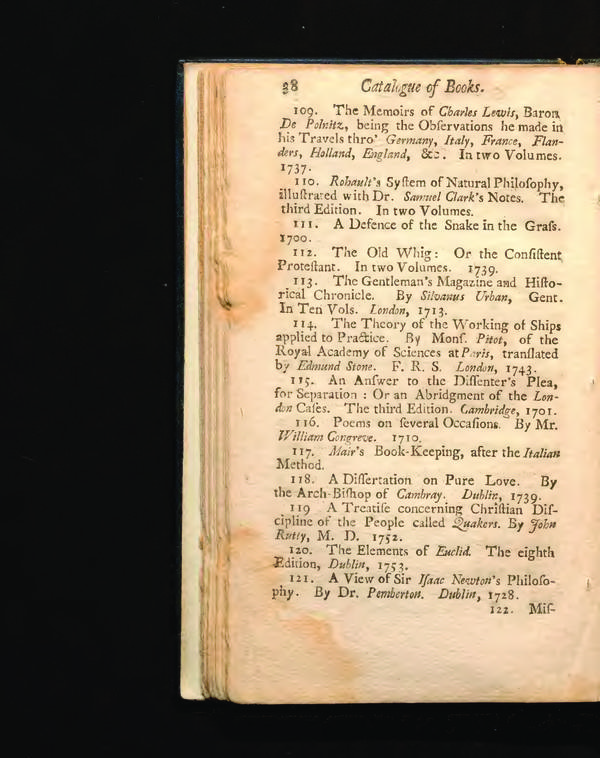 38 Catalogue of Books.
109. The Memoirs of Charles Lewis, Baron
De Polnitz, being the Obſervations he made in
his Travels thro' Germany, Italy, France, Flan-
ders, Holland, England, &c. In two Volumes.
1737.
110. Rohault's Syſtem of Natural Philoſophy,
illuſtrated with Dr. Samuel Clark's Notes. The
third Edition. In two Volumes.
111. A Defence of the Snake in the Graſs.
1700.
112. The Old Whig: Or the Conſiſtent
Proteſtant. In two Volumes. 1739.
113. The Gentleman's Magazine and Hiſto-
rical Chronicle. By Silvanus Urban, Gent.
In Ten Vols. London, 1713.
114. The Theory of the Working of Ships
applied to Practice. By Monſ. Pitot, of the
Royal Academy of Sciences at Paris, tranſlated
by Edmund Stone. F. R. S. London, 1743.
115. An Anſwer to the Diſſenter's Plea,
for Separation : Or an Abridgment of the Lon-
don Caſes. The third Edition. Cambridge, 1701.
116. Poems on ſeveral Occaſions. By Mr.
William Congreve. 1710.
117. Mair's Book-Keeping, after the Italian
Method.
118. A Diſſertation on Pure Love. By
the Arch-Biſhop of Cambray. Dublin, 1739.
119 A Treatiſe concerning Chriſtian Diſ-
cipline of the People called Quakers. By John
Rutty, M. D. 1752.
120. The Elements of Euclid. The eighth
Edition, Dublin, 1753.
121. A View of Sir Iſaac Newton's Philoſo-
phy. By Dr. Pemberton. Dublin, 1728.
122. Miſ-